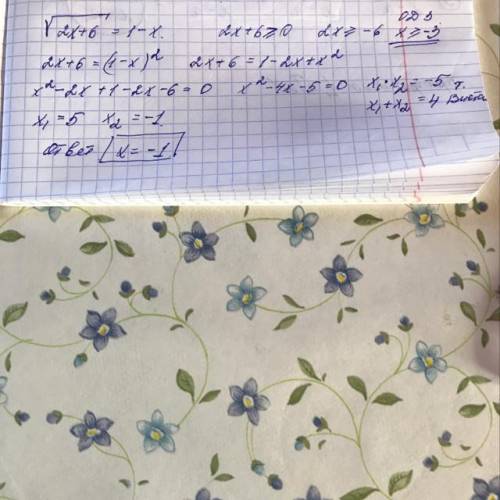 √2x+6 = 1-x. 2x+6≥0 2x≥-6 ОДЗ x≥-3
2x+6=(1-x)² 2x+6=1-2x+x²
x²-2x+1-2x-6=0 x²-4x-5=0 x₁·x₂=-5 т.
x₁=5 x₂=-1. x₁+x₂=4 Виета
Ответ x=-1